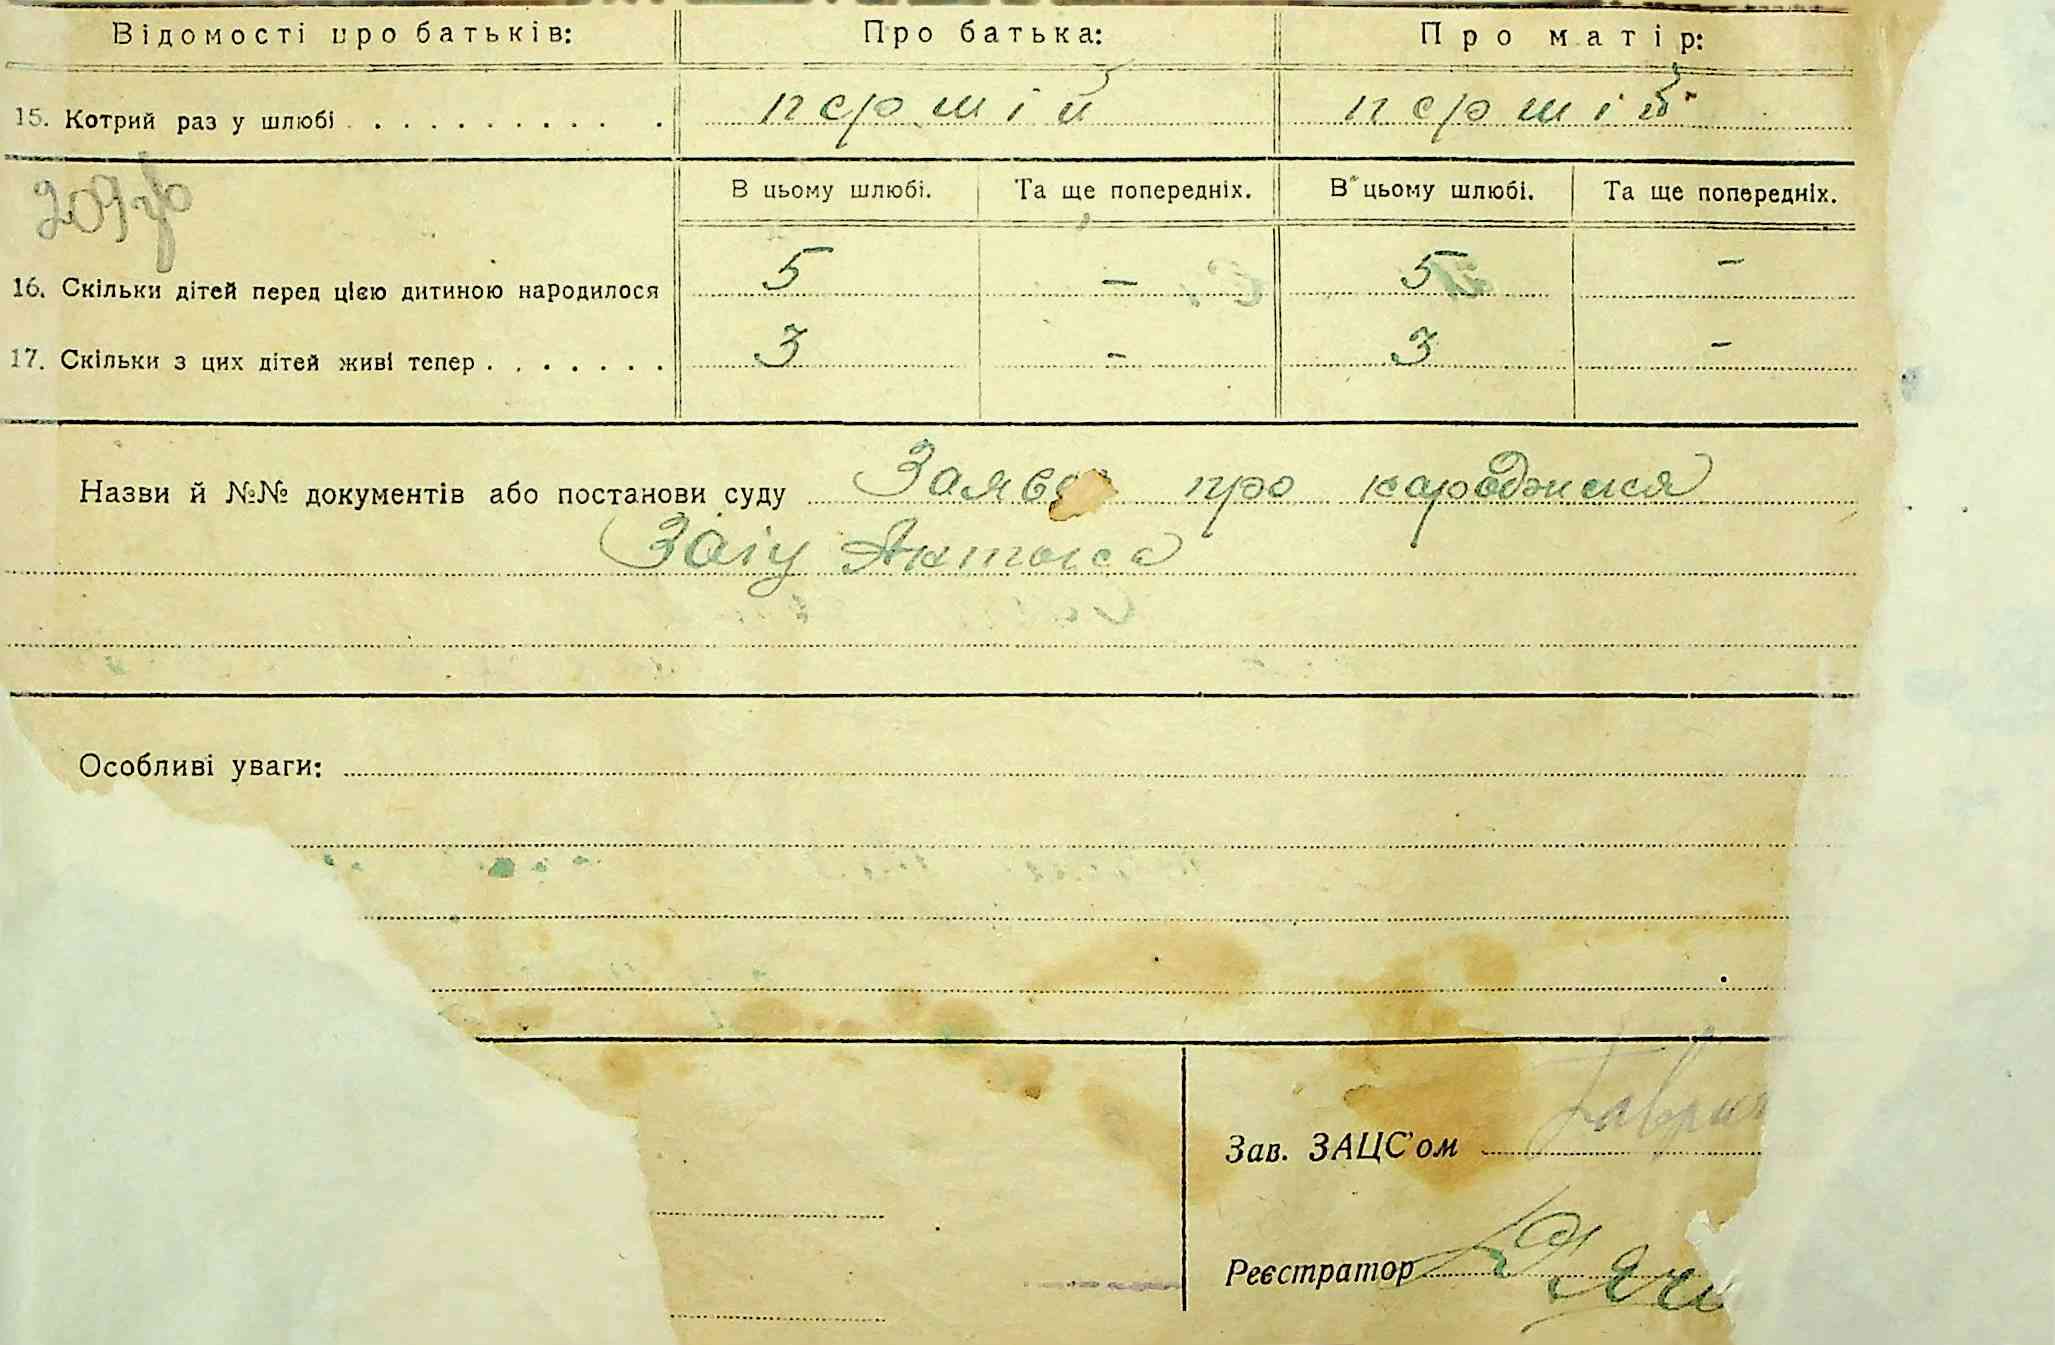 Відомості про батьків: Про батька: Про матір:
15. Котрий раз у шлюбі першій першій
В цьому шлюбі. Та ще попередніх. В цьому шлюбі. Та ще попередніх.
16. Скільки дітей перед цією дитиною народилося 5 – 5 –
17. Скільки з цих дітей живі тепер 3 – 3 –
Назви й №№ документів або постанови суду Заява про народження
Заїц Антона
Особливі уваги:
Зав. ЗАЦС'ом Гаври
Реєстратор